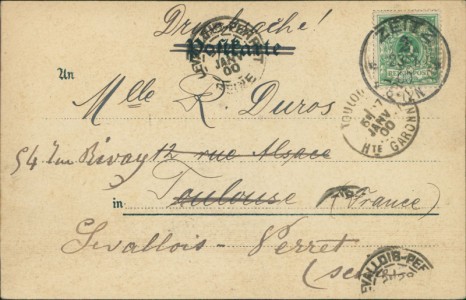 Drucksache!
Postkarte
LEVALLOIS-PERRET
JANV
00
SEINE
ZEITZ
TOULOUSE
JANV
00
Hte GARONNE
An
Mlle R Duros
54 Rue Rivay 12 rue Alsace
in Toulouse (France)
Levallois-Perret
(Seine)
LEVALLOIS-PER